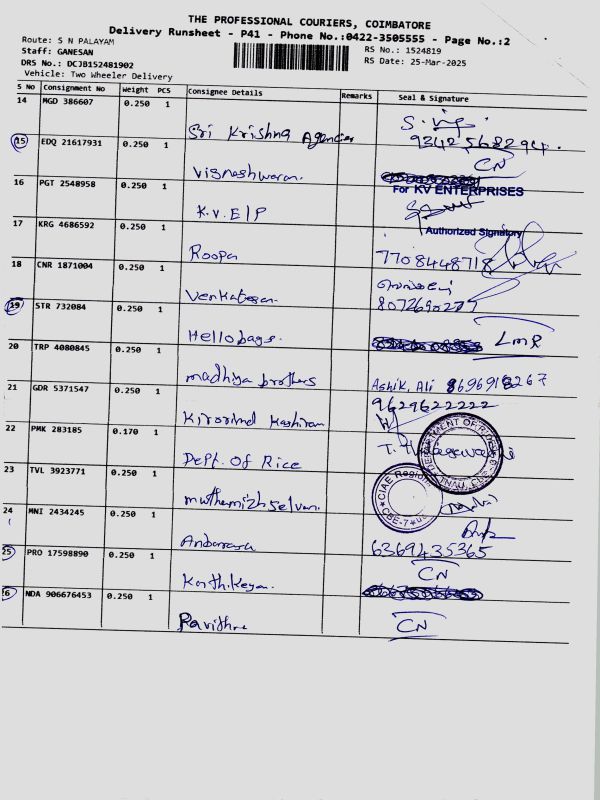 THE PROFESSIONAL COURIERS, COIMBATORE
Delivery Runsheet - P41 - Phone No.:0422-3505555 - Page No.:2
Route: S N PALAYAM
RS No.: 1524819
Staff: GANESAN
RS Date: 25-Mar-2025
DRS No.: DCJB152481902
Vehicle: Two Wheeler Delivery
S No Consignment No Weight PCS Consignee Details Remarks Seal & Signature
14 MGD 386607 0.250 1
Sri Krishna Agencies
15 EDQ 21617931 0.250 1
CN
Vigneshwaran.
16 PGT 2548958 0.250 1
For KV ENTERPRISES
K.V.E/P
17 KRG 4686592 0.250 1
Authorized Signatory
Roopa
7708448718
18 CNR 1871004 0.250 1
Venkatesan.
8072690275
19 STR 732084 0.250 1
Hellobags.
20 TRP 4080845 0.250 1
madhiya brothers
Ashik. Ali 8696918267
21 GDR 5371547 0.250 1
9629622222
22 PMK 283185 0.170 1
Dept. Of Rice
DEPARTMENT OF RICE
TNAU, CBE
23 TVL 3923771 0.250 1
CIAE Regional
CBE-7
muthamizh selvan.
24 MNI 2434245 0.250 1
Anbarasu
6369435365
25 PRO 17598890 0.250 1
CN
Karthikeyan.
26 NDA 906676453 0.250 1
Pavithra
CN